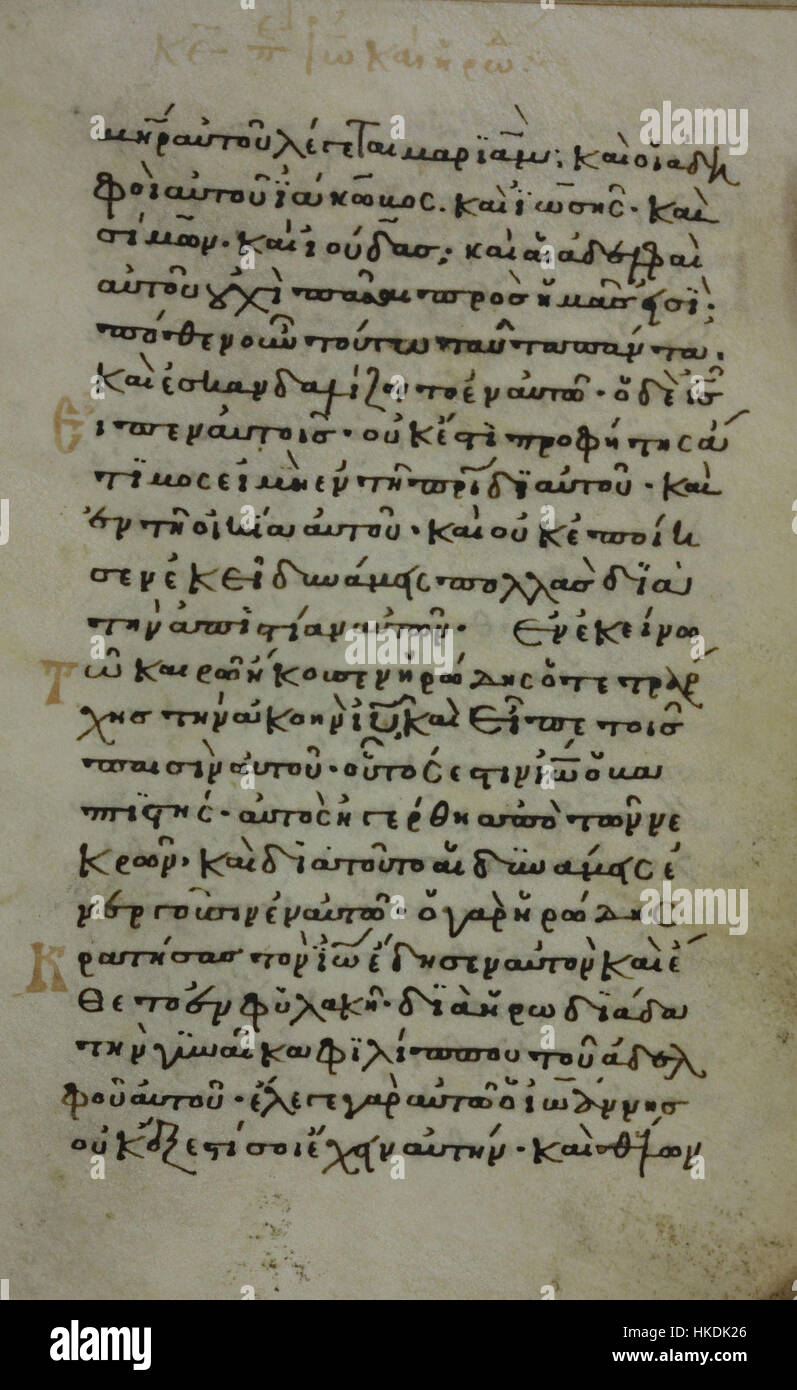 μη̅ρ αὐτοῦ λέγεται μαριὰμ; καὶ οἱ ἀδελ
φοὶ αὐτοῦ ϊάκωβος. καὶ ϊωσῆς· καὶ
σίμων· καὶ ιούδας; καὶ αἱ ἀδελφαὶ
αὐτοῦ οὐχὶ πᾶσαι πρὸς ἡμᾶς εἰσϊ;
πόθεν οὖν τούτω ταῦτα πάντα.
καὶ ἐσκανδαλίζοντο ἐν αὐτῶ· ὁ δὲ ις̅
εἶπεν αὐτοῖς· οὐκ ἔστι προφήτης ἄ
τϊμος εἰ μὴ ἐν τῆ πρ̅ίδϊ αὐτοῦ· καὶ
ἐν τῆ οἰκία αὐτοῦ· καὶ οὐκ ἐποίη
σεν ἐκεῖ δυνάμεις πολλὰς διὰ
τὴν ἀπιστίαν αὐτῶν· Ἐν ἐκείνω
τῶ καιρῶ ἤκουσεν ἡρώδης ὁ τετράρ
χης τὴν ἀκοὴν ιυ̅ καὶ εἶπε τοῖς
παισὶν αὐτοῦ· οὗτός ἐστιν ϊω̅ ὁ βα
πτϊστής· αὐτὸς ἠγέρθη ἀπὸ τῶν νε
κρῶν· καὶ διὰ τοῦτο αἱ δυνάμεις ἐ
νεργοῦσιν ἐν αὐτῶ· ὁ γὰρ ἡρώδης
κρατήσας τὸν ϊω̅ ἔδησεν αὐτὸν καὶ ἔ
θετο ἐν φυλακῆ· διὰ ἡρωδϊάδα
τὴν γυναῖκα φϊλίππου τοῦ ἀδελ
φοῦ αὐτοῦ· ἔλεγε γὰρ αὐτῶ ὁ ϊωάννης
οὐκ ἔξεστί σοι ἔχειν αὐτήν· καὶ θέλων
alamy
Image ID: HKDK26
www.alamy.com